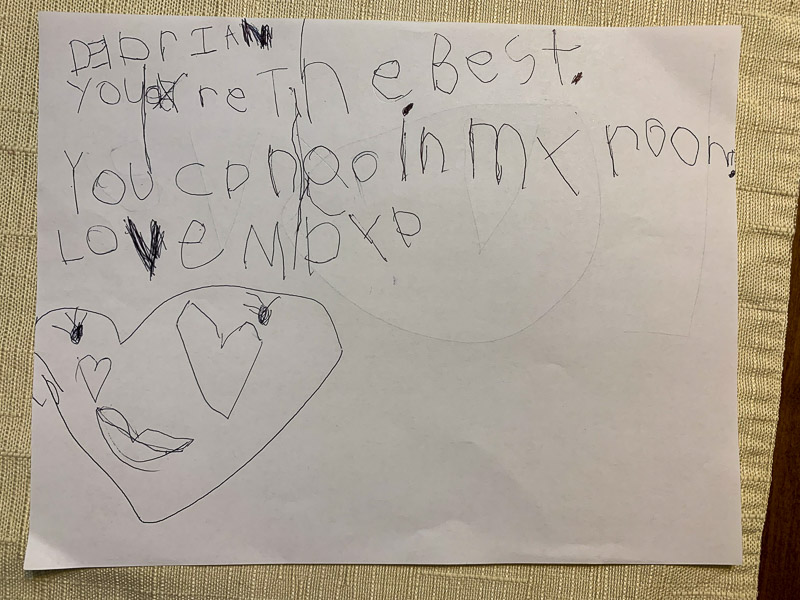 DEar IAN
YOU're The BesT.
YOU can go In mY room.
LOVe MaYa